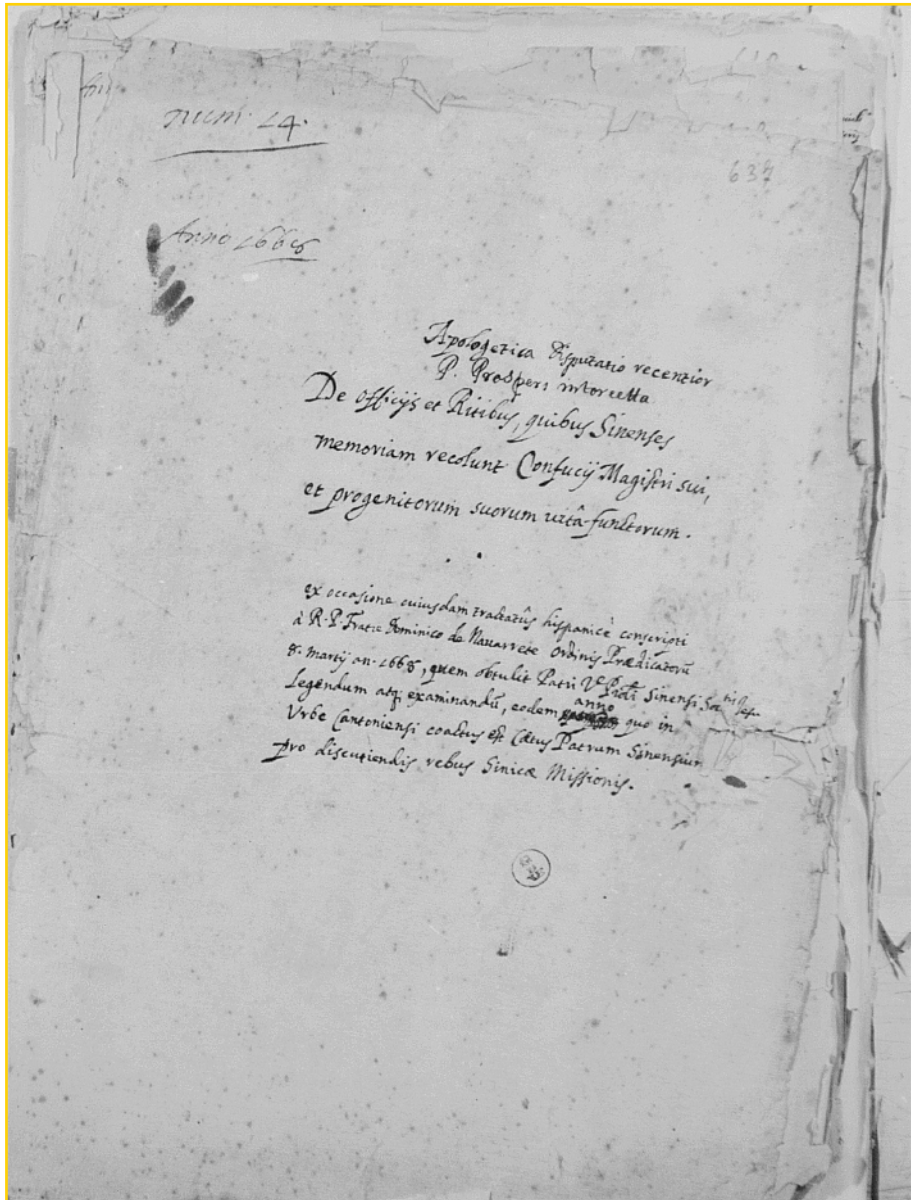 num. 14.
637
Anno 1668
Apologetica Disputatio recentior
P. Prosperi intorcetta
De officijs et Ritibus, quibus Sinenses
memoriam recolunt Confucij Magistri sui,
et progenitorum suorum uitâ functorum.
ex occasione cuiusdam tractatûs hispanicè conscripti
à R. P. Fratre Dominico de Nauarrete Ordinis Prædicatorū
8. martij an. 1668, quem obtulit Patri V. Prou Sinensi Soc.tis Jesu
legendum atq; examinandū, eodem anno quo in
Vrbe Cantoniensi coactus est Cœtus Patrum Sinensium
pro discutiendis rebus Sinicæ Missionis.